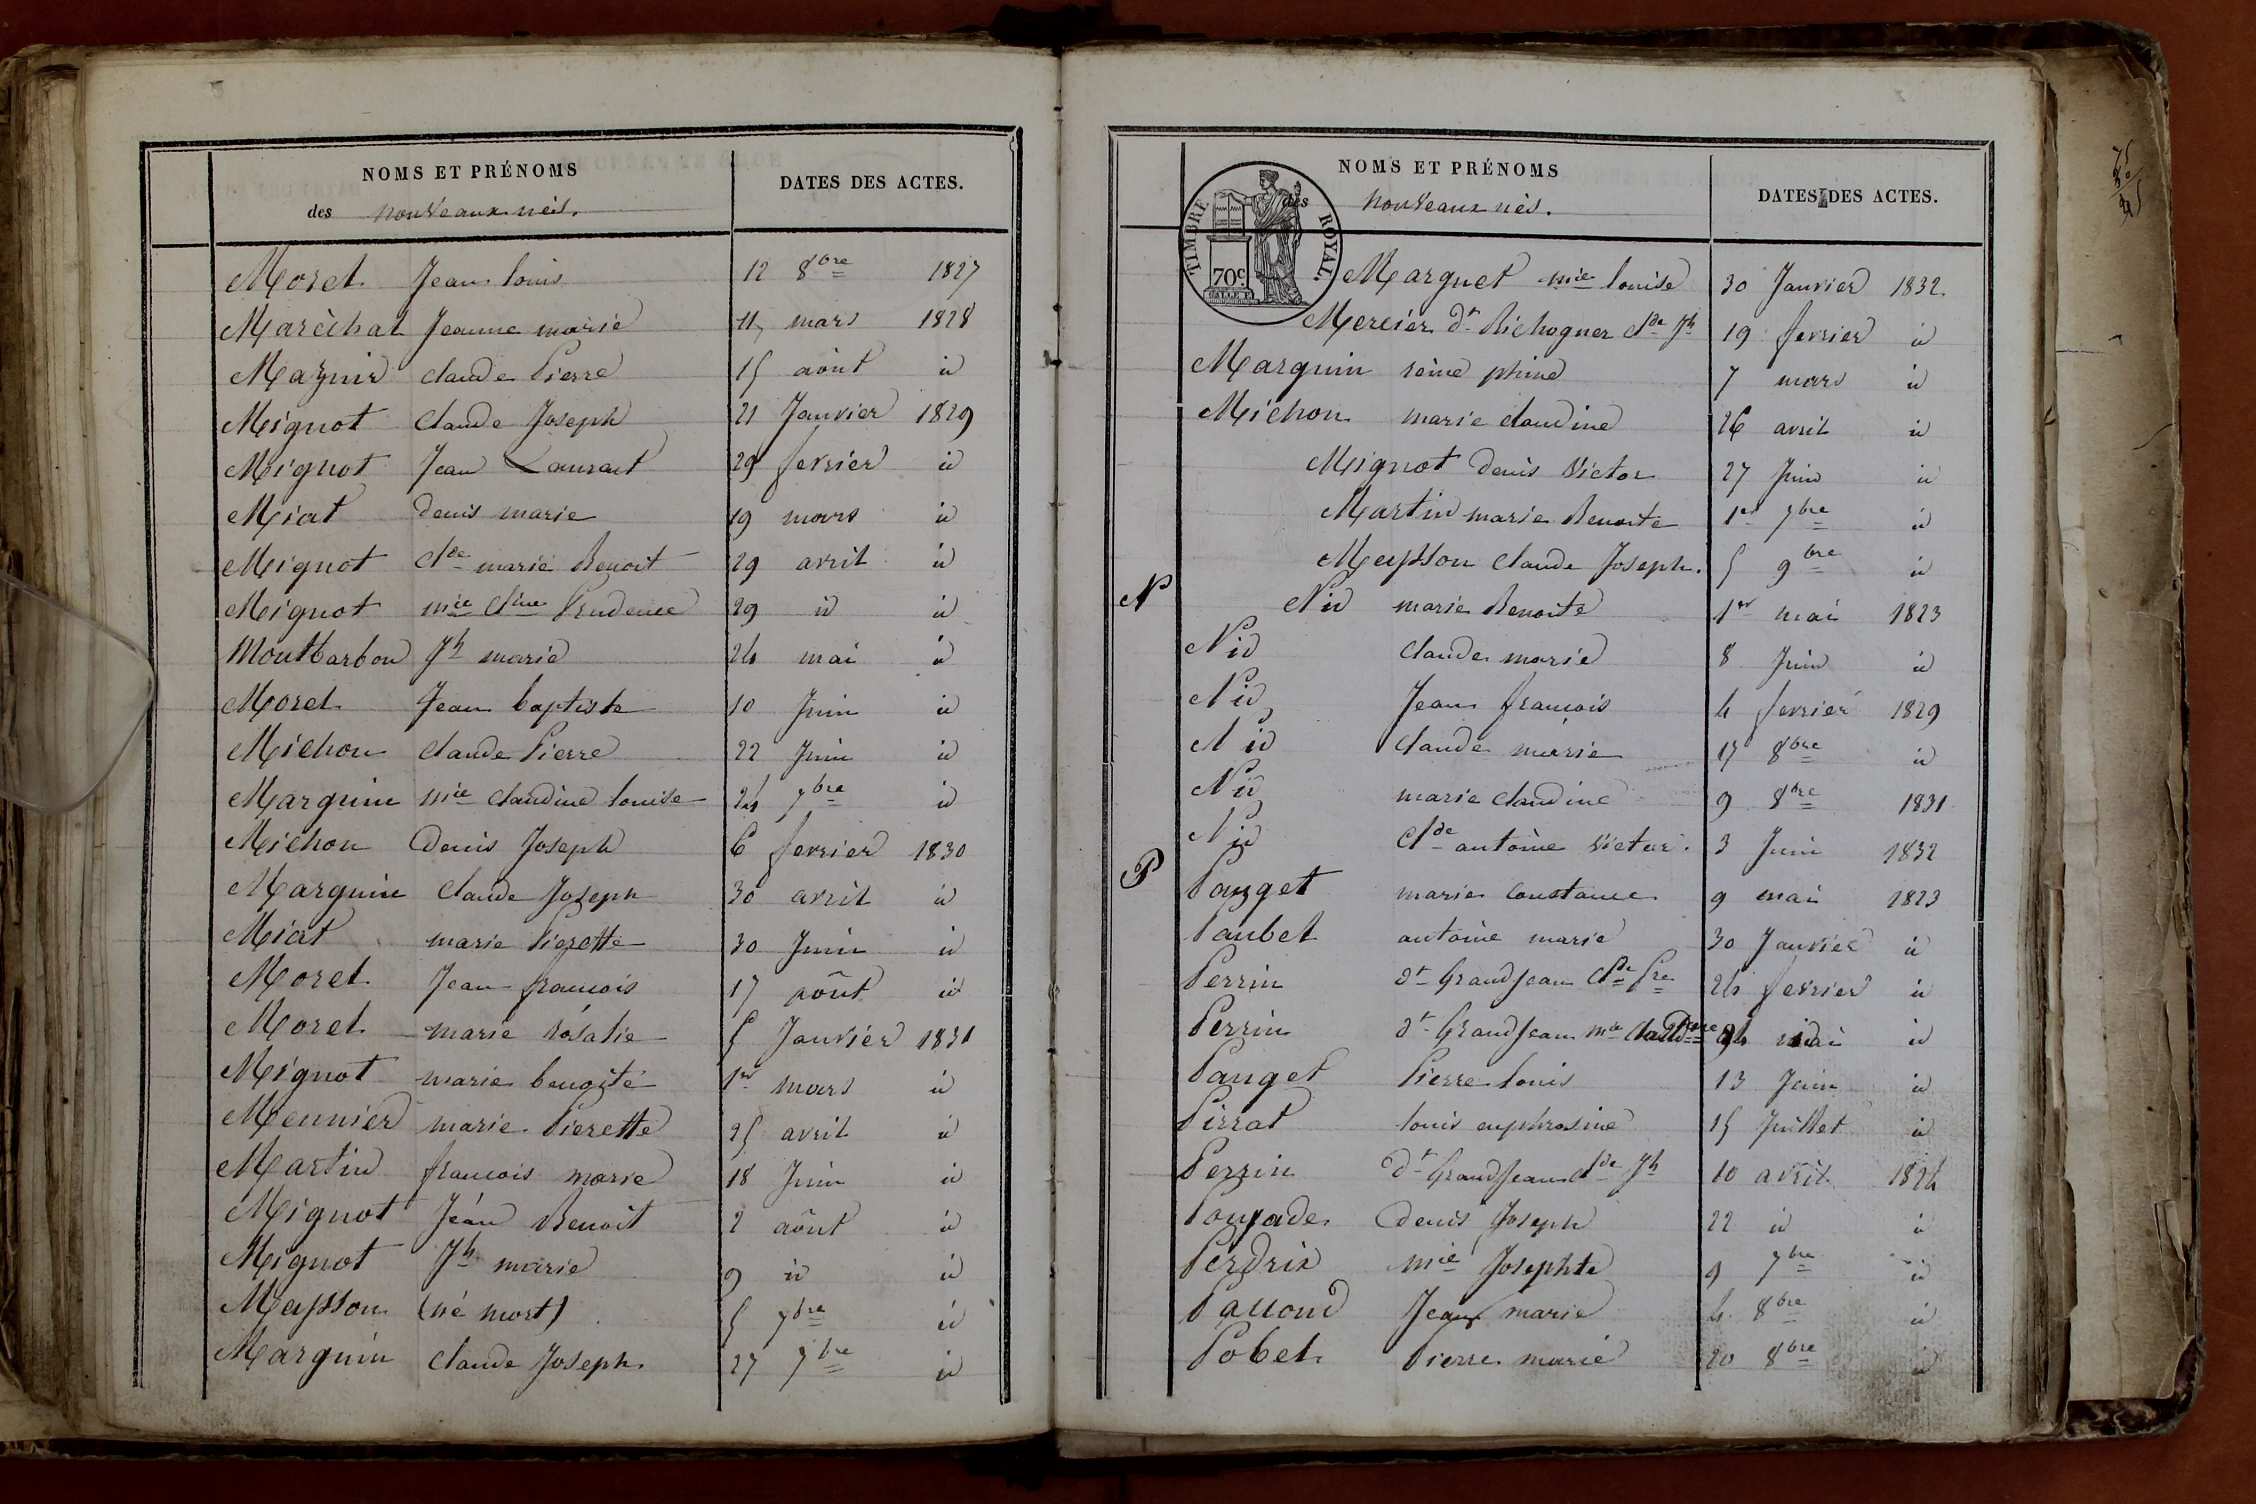 NOMS ET PRÉNOMS
des nouveaux nés.
DATES DES ACTES.
Morel Jean louis 12 8bre 1827
Maréchal Jeanne marie 11 mars 1828
Maznir claude Pierre 15 août id
Mignot claude Joseph 21 Janvier 1829
Mignot Jean Laurant 29 fevrier id
Miat denis marie 19 mars id
Mignot Cde marie Benoit 29 avril id
Mignot mie Cine Prudence 29 id id
Montbarbon Jh marie 24 mai id
Morel Jean baptiste 10 Juin id
Michon claude Pierre 22 Juin id
Marguin mie claudine louise 24 7bre id
Michon Denis Joseph 6 fevrier 1830
Marguin Claude Joseph 30 avril id
Miat marie Pierette 30 Juin id
Morel Jean francois 17 août id
Morel marie rosalie 5 Janvier 1831
Mignot marie benoite 1er mars id
Meunier marie Pierette 25 avril id
Martin francois marie 18 Juin id
Mignot Jean Benoit 2 août id
Mignot Jh marie 9 id id
Meysson (né mort) 5 7bre id
Marguin claude Joseph 27 7bre id
NOMS ET PRÉNOMS
des nouveaux nés.
DATES DES ACTES.
TIMBRE ROYAL
70c
Marguet mie louise 30 Janvier 1832
Mercier dt Richogner Cde Jh 19 fevrier id
Marguin reine phine 7 mars id
Michon marie claudine 26 avril id
Mignot denis Victor 27 Juin id
Martin marie Benoite 1er 7bre id
Meysson Claude Joseph. 5 9bre id
N Nid marie Benoite 1er mai 1823
Nid Claude marie 8 Juin id
Nid Jean francois 4 fevrier 1829
Nid Claude marie 17 8bre id
Nid marie claudine 9 8bre 1831
Nid Cde antoine victor. 3 Juin 1832
P Pauget marie Constance 9 mai 1823
Paubel antoine marie 30 Janvier id
Perrin dt Grandjean Cde Pre 24 fevrier id
Perrin dt Grandjean mie Claudine 24 mai id
Pauget Pierre louis 13 Juin id
Pirrat louis euphrosine 15 Juillet id
Perrin dt Grandjean Cde Jh 10 avril 1824
Pouyade Denis Joseph 22 id id
Perdrix mie Josephte 9 7bre id
Pauond Jean marie 4 8bre id
Pobel Pierre marie 20 8bre id